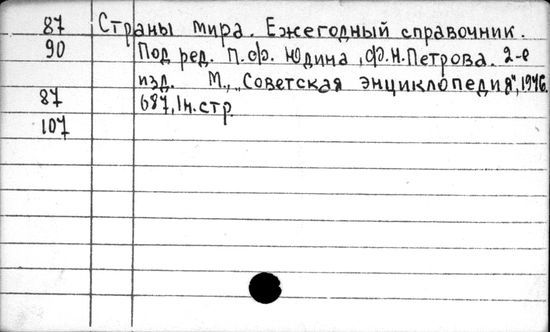 87 Страны мира. Ежегодный справочник.
90 Под ред. П.Ф. Юдина, Ф.Н.Петрова. 2-е
изд. М., „Советская энциклопедия", 1946.
87 687, 1н.стр.
107